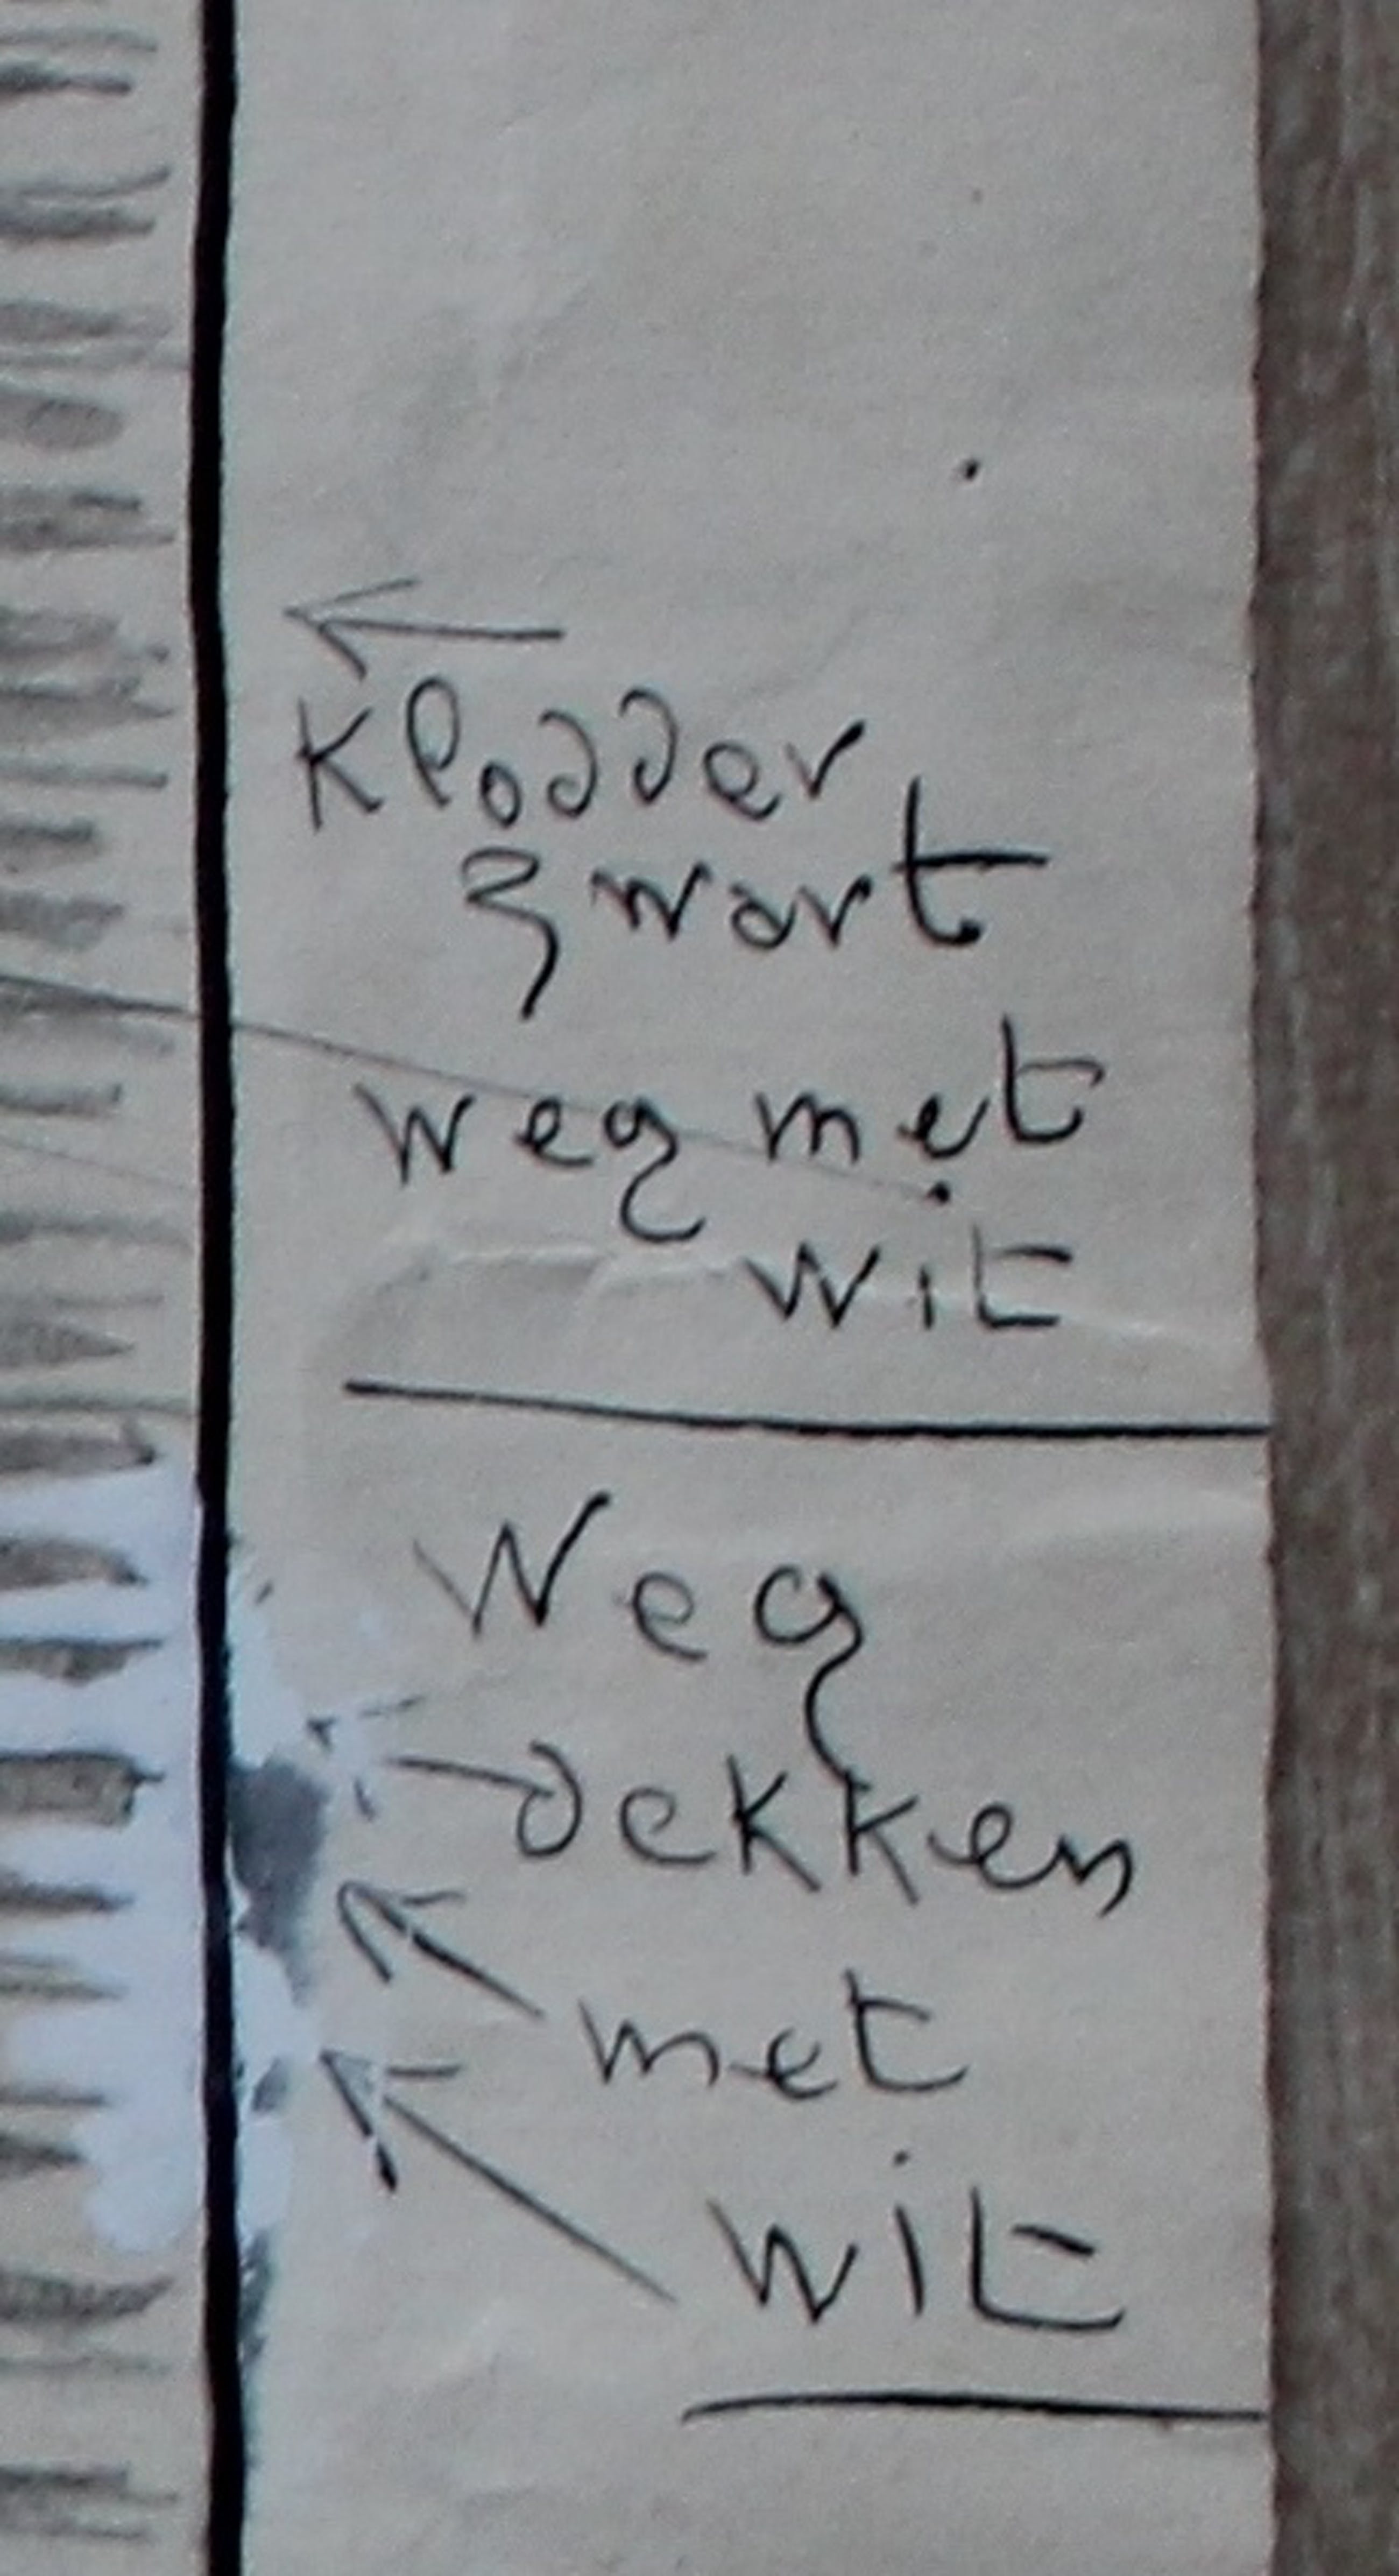 Klodder
zwart
weg met
wit
Weg
dekken
met
wit